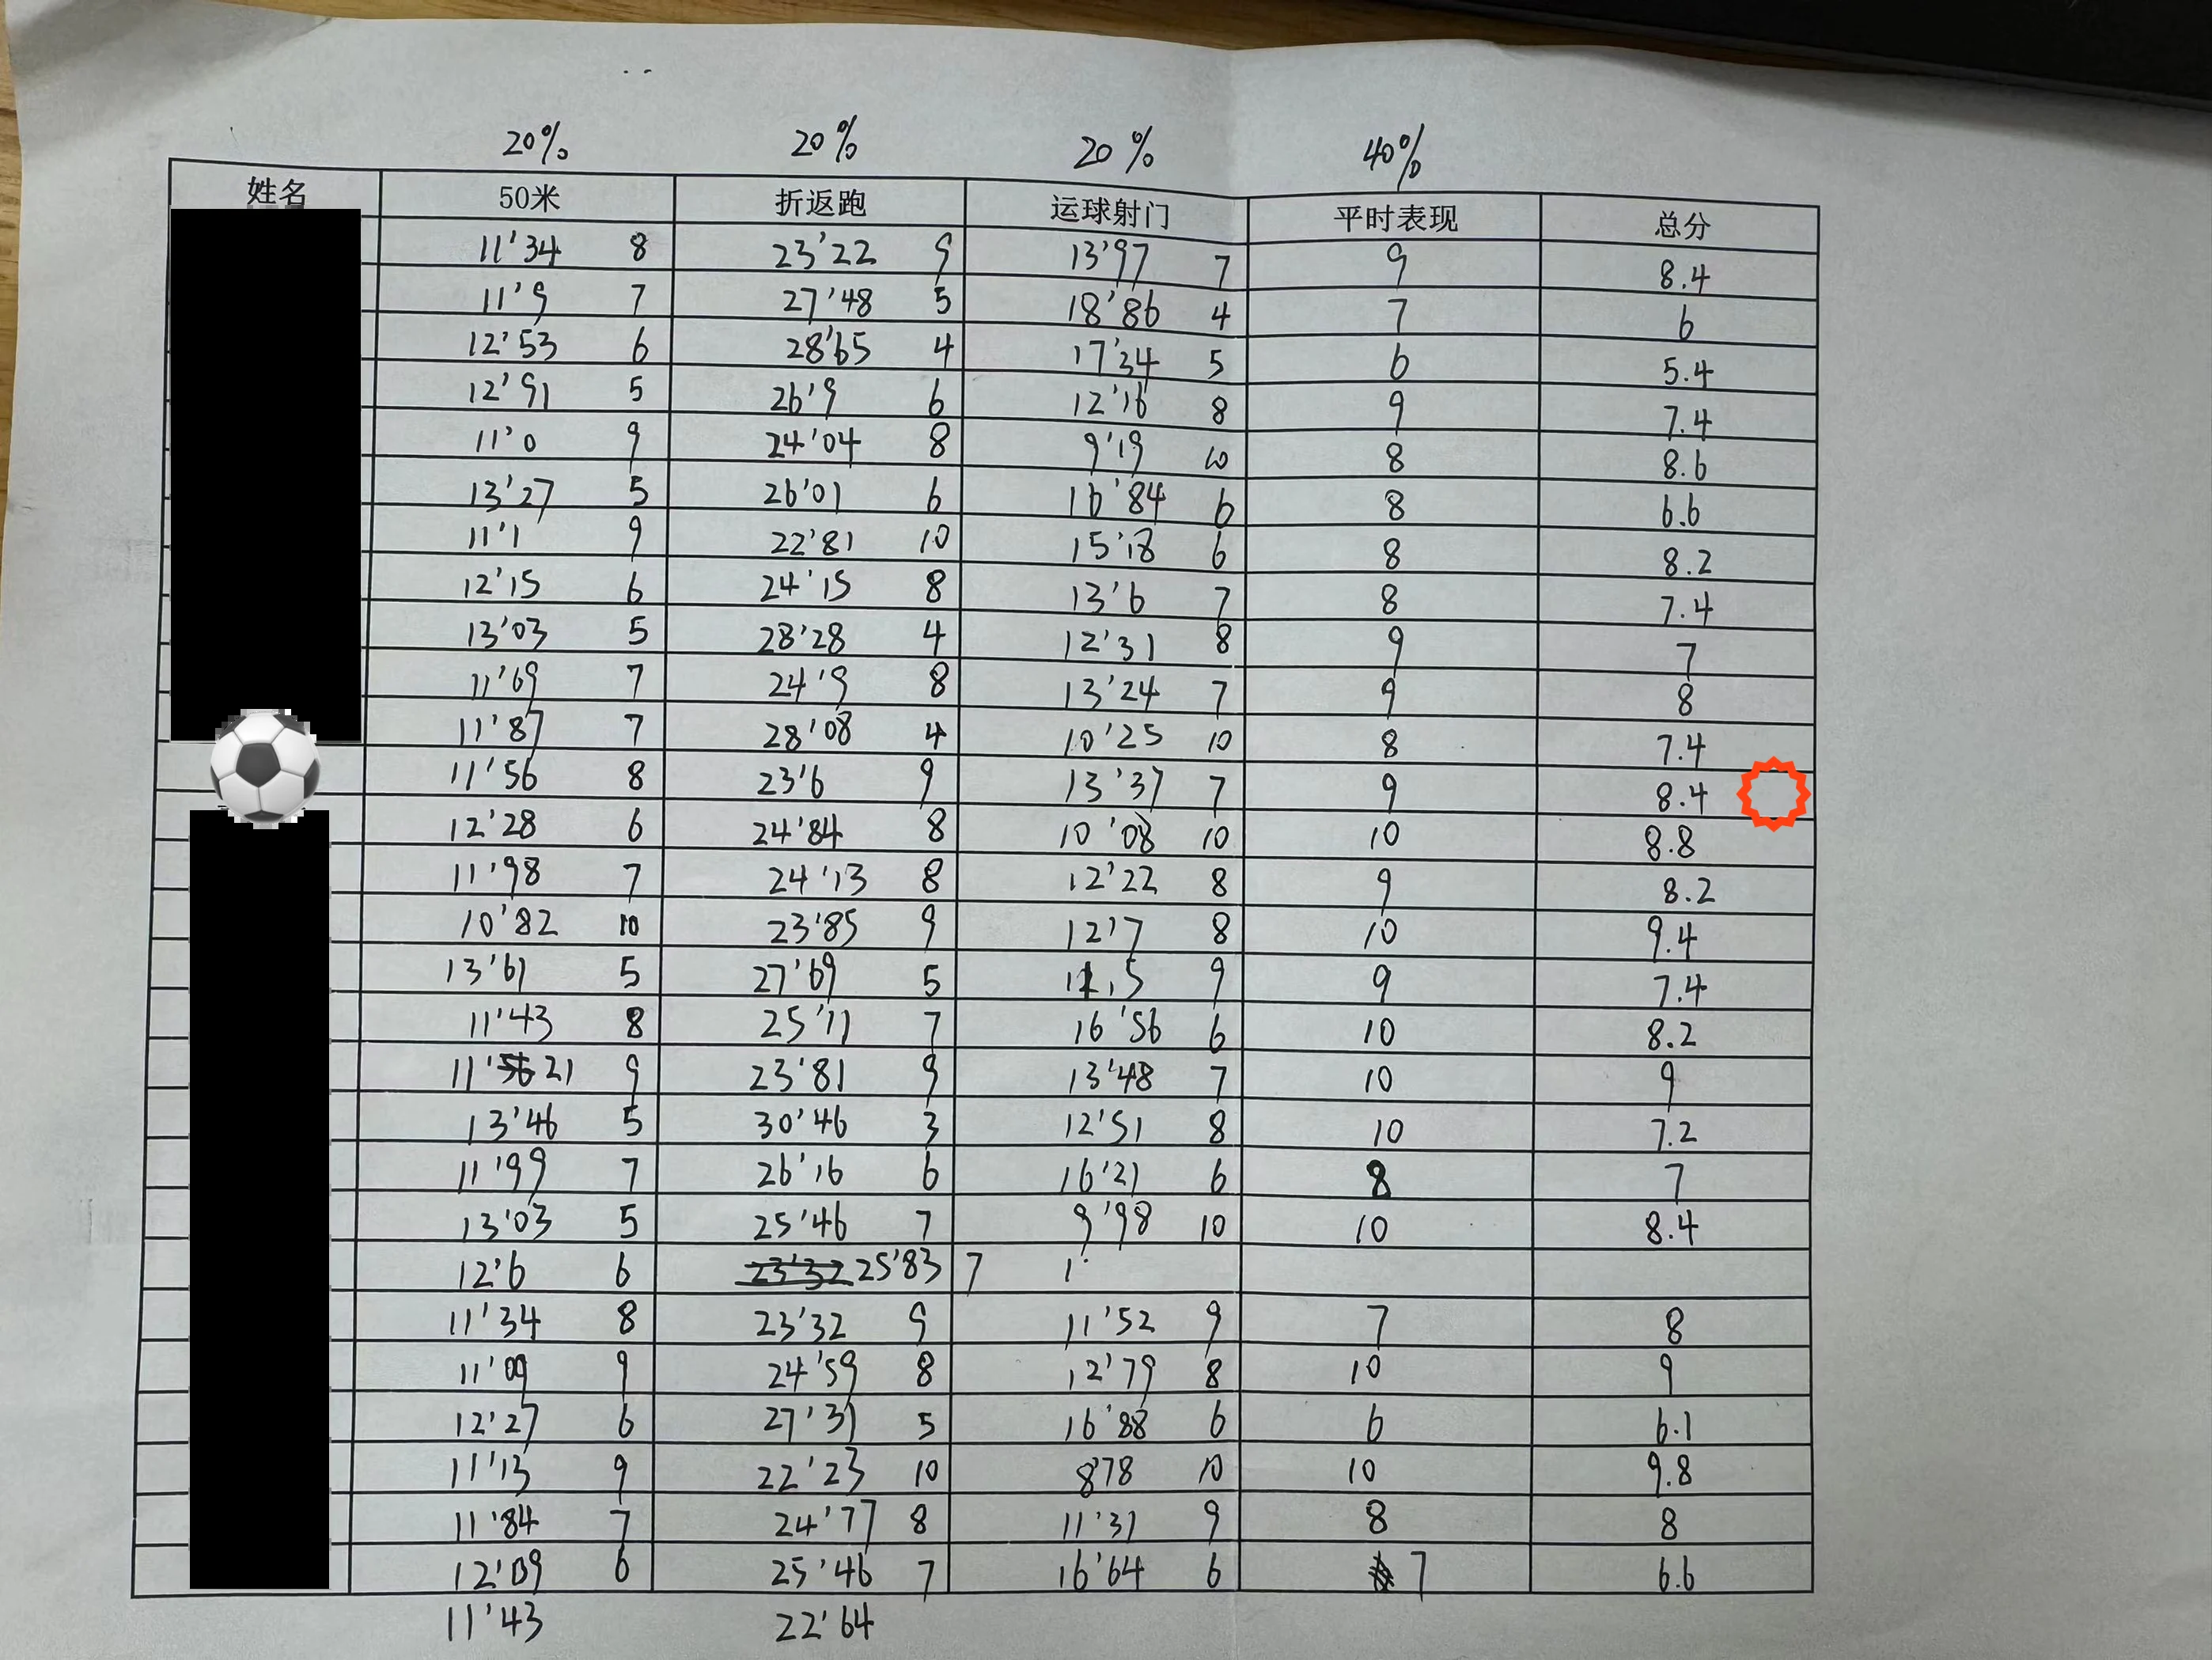 20% 20% 20% 40%
姓名 50米 折返跑 运球射门 平时表现 总分
11'34 8 23'22 9 13'97 7 9 8.4
11'9 7 27'48 5 18'86 4 7 6
12'53 6 28'65 4 17'34 5 6 5.4
12'91 5 26'9 6 12'16 8 9 7.4
11'0 9 24'04 8 9'19 10 8 8.6
13'27 5 26'01 6 16'84 6 8 6.6
11'1 9 22'81 10 15'18 6 8 8.2
12'15 6 24'15 8 13'6 7 8 7.4
13'03 5 28'28 4 12'31 8 9 7
11'69 7 24'9 8 13'24 7 9 8
11'87 7 28'08 4 10'25 10 8 7.4
11'56 8 23'6 9 13'37 7 9 8.4
12'28 6 24'84 8 10'08 10 10 8.8
11'98 7 24'13 8 12'22 8 9 8.2
10'82 10 23'85 9 12'7 8 10 9.4
13'61 5 27'69 5 11,5 9 9 7.4
11'43 8 25'11 7 16'56 6 10 8.2
11'56 21 9 23'81 9 13'48 7 10 9
13'46 5 30'46 3 12'51 8 10 7.2
11'99 7 26'16 6 16'21 6 8 7
13'03 5 25'46 7 9'98 10 10 8.4
12'6 6 23'32 25'83 7 1'
11'34 8 23'32 9 11'52 9 7 8
11'09 9 24'59 8 12'79 8 10 9
12'27 6 27'31 5 16'88 6 6 6.1
11'13 9 22'23 10 8'78 10 10 9.8
11'84 7 24'77 8 11'31 9 8 8
12'09 6 25'46 7 16'64 6 7 6.6
11'43 22'64